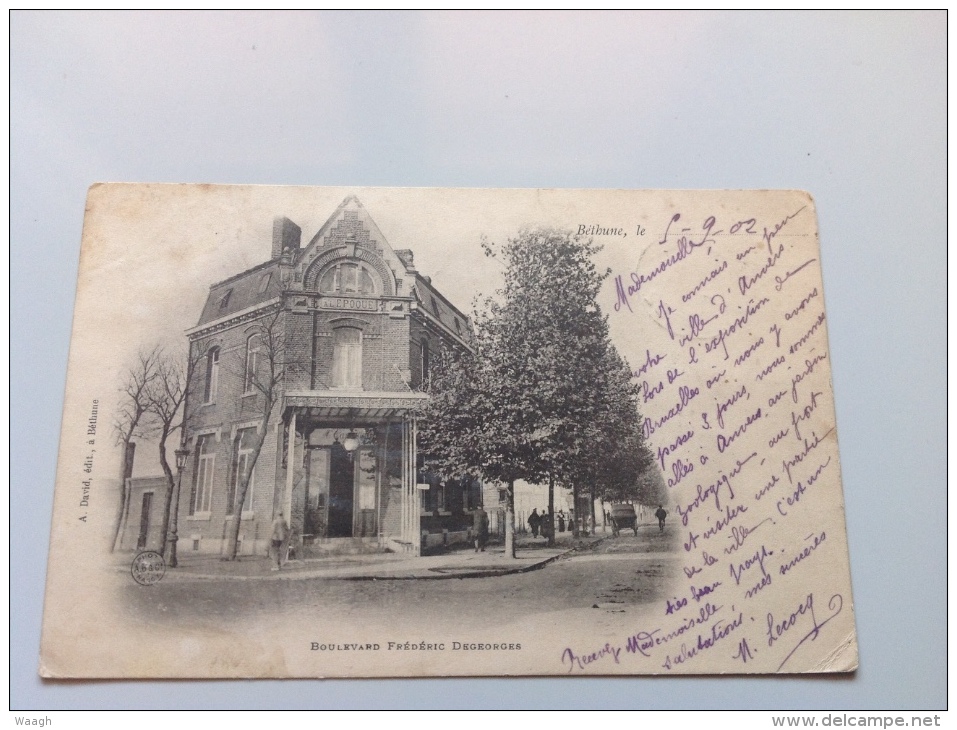 Béthune, le 5-9-02
Mademoiselle,
Je connais un peu
votre ville d'Anvers.
Lors de l'exposition de
Bruxelles où nous y avons
passé 3 jours, nous sommes
allés à Anvers, au jardin
zoologique, au port
et visiter une partie
de la ville. C'est un
très beau pays.
Recevez Mademoiselle, mes sincères
salutations.
M. Lecocq
A L'EPOQUE
A. David, édit., à Béthune
BOULEVARD FRÉDÉRIC DEGEORGES
Waagh
http://www.delcampe.net